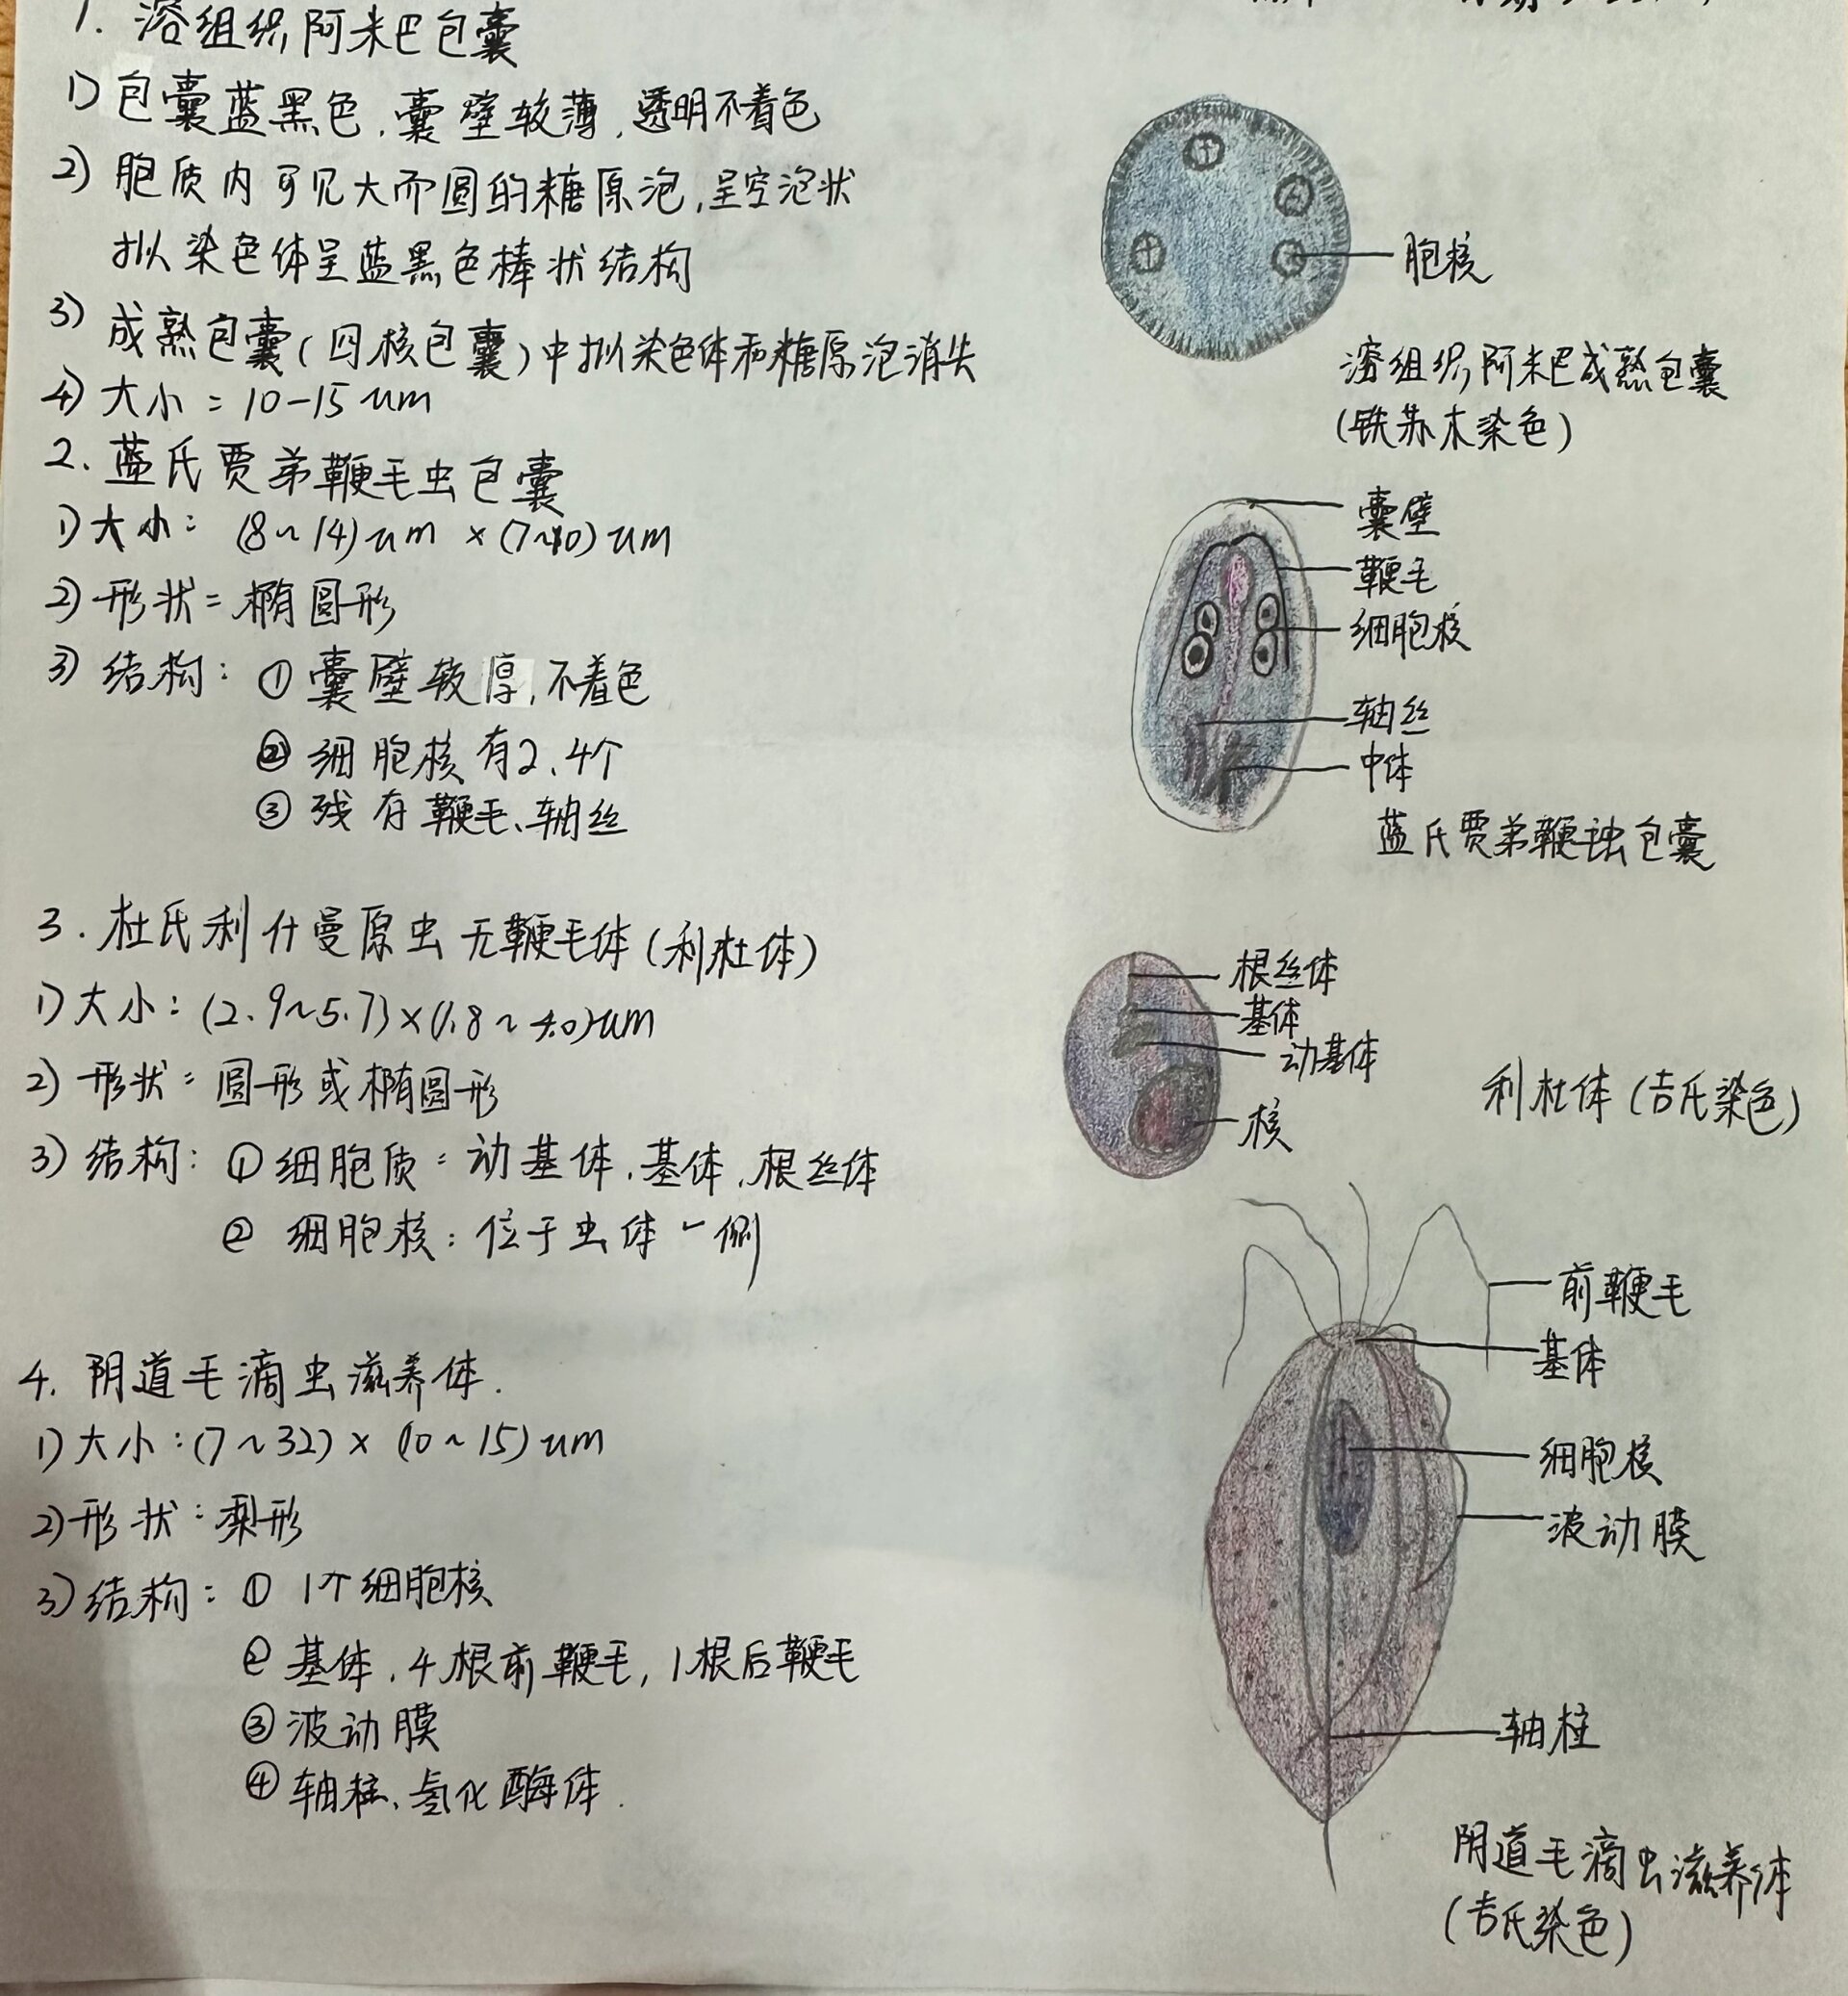 1. 溶组织阿米巴包囊
1) 包囊蓝黑色,囊壁较薄,透明不着色
2) 胞质内可见大而圆的糖原泡,呈空泡状
拟染色体呈蓝黑色棒状结构
3) 成熟包囊(四核包囊)中拟染色体和糖原泡消失
4) 大小:10-15um
胞核
溶组织阿米巴成熟包囊
(铁苏木染色)
2. 蓝氏贾第鞭毛虫包囊
1) 大小: (8~14)um × (7~10)um
2) 形状:椭圆形
3) 结构: ① 囊壁较厚,不着色
② 细胞核有2、4个
③ 残存鞭毛、轴丝
囊壁
鞭毛
细胞核
轴丝
中体
蓝氏贾第鞭毛虫包囊
3. 杜氏利什曼原虫无鞭毛体(利杜体)
1) 大小: (2.9~5.7)×(1.8~4.0)um
2) 形状:圆形或椭圆形
3) 结构: ① 细胞质:动基体、基体、根丝体
② 细胞核:位于虫体一侧
根丝体
基体
动基体
核
利杜体(吉氏染色)
4. 阴道毛滴虫滋养体.
1) 大小:(7~32)×(10~15)um
2) 形状:梨形
3) 结构: ① 1个细胞核
② 基体、4根前鞭毛,1根后鞭毛
③ 波动膜
④ 轴柱、氢化酶体.
前鞭毛
基体
细胞核
波动膜
轴柱
阴道毛滴虫滋养体
(吉氏染色)